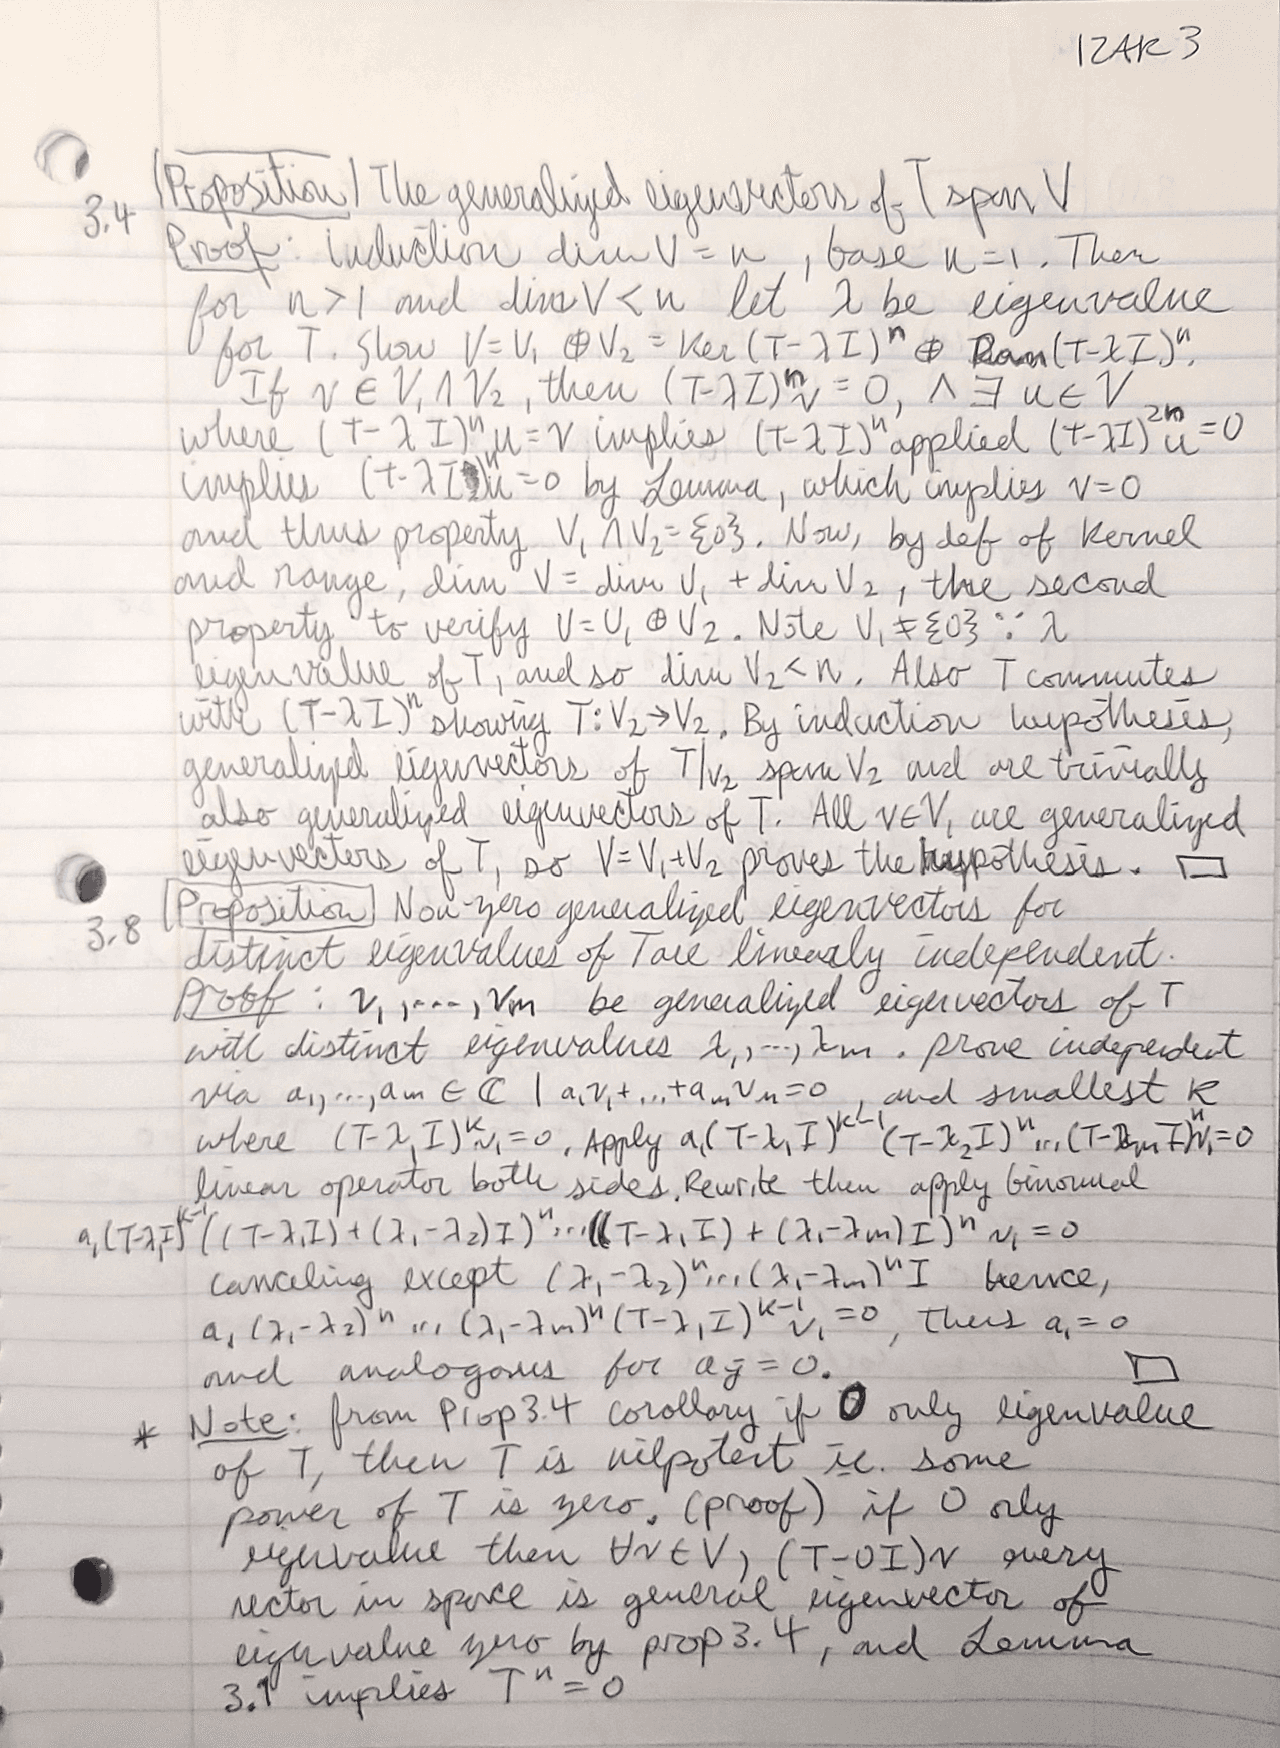 IZAK 3
3.4 Proposition The generalized eigenvectors of T span V
Proof: induction dim V = n, base n=1. Then
for n>1 and dim V<n let λ be eigenvalue
for T. Show V=V₁ ⊕ V₂ = Ker(T-λI)ⁿ ⊕ Ran(T-λI)ⁿ.
If v ∈ V₁ ∧ V₂, then (T-λI)ⁿv = 0, ∧ ∃ u ∈ V
where (T-λI)ⁿu = v implies (T-λI)ⁿ applied (T-λI)²ⁿu = 0
implies (T-λI)ⁿu = 0 by Lemma, which implies v=0
and thus property V₁ ∧ V₂ = {0}. Now, by def of Kernel
and range, dim V = dim V₁ + dim V₂, the second
property to verify V=V₁ ⊕ V₂. Note V₁ ≠ {0} ∵ λ
eigenvalue of T, and so dim V₂ < n. Also T commutes
with (T-λI)ⁿ showing T: V₂→V₂. By induction hypothesis,
generalized eigenvectors of T|v₂ span V₂ and are trivially
also generalized eigenvectors of T. All v∈V₁ are generalized
eigenvectors of T, so V=V₁+V₂ proves the hypothesis. □
3.8 Proposition Non-zero generalized eigenvectors for
distinct eigenvalues of T are linearly independent.
Proof: v₁,...,vm be generalized eigenvectors of T
with distinct eigenvalues λ₁,...,λm. prove independent
via a₁,...,am ∈ ℂ | a₁v₁+...+amvm=0, and smallest k
where (T-λ₁I)ᵏv₁=0. Apply a₁(T-λ₁I)ᵏ⁻¹(T-λ₂I)ⁿ...(T-λmI)ⁿv₁=0
linear operator both sides. Rewrite then apply binomial
a₁(T-λ₁I)ᵏ⁻¹((T-λ₁I)+(λ₁-λ₂)I)ⁿ...((T-λ₁I)+(λ₁-λm)I)ⁿ v₁=0
canceling except (λ₁-λ₂)ⁿ...(λ₁-λm)ⁿI hence,
a₁(λ₁-λ₂)ⁿ...(λ₁-λm)ⁿ(T-λ₁I)ᵏ⁻¹v₁=0, thus a₁=0
and analogous for aj=0. □
* Note: from Prop 3.4 corollary if 0 only eigenvalue
of T, then T is nilpotent ie. some
power of T is zero. (proof) if 0 only
eigenvalue then ∀v∈V, (T-0I)v every
vector in space is general eigenvector of
eigenvalue zero by prop 3.4, and Lemma
3.1 implies Tⁿ=0